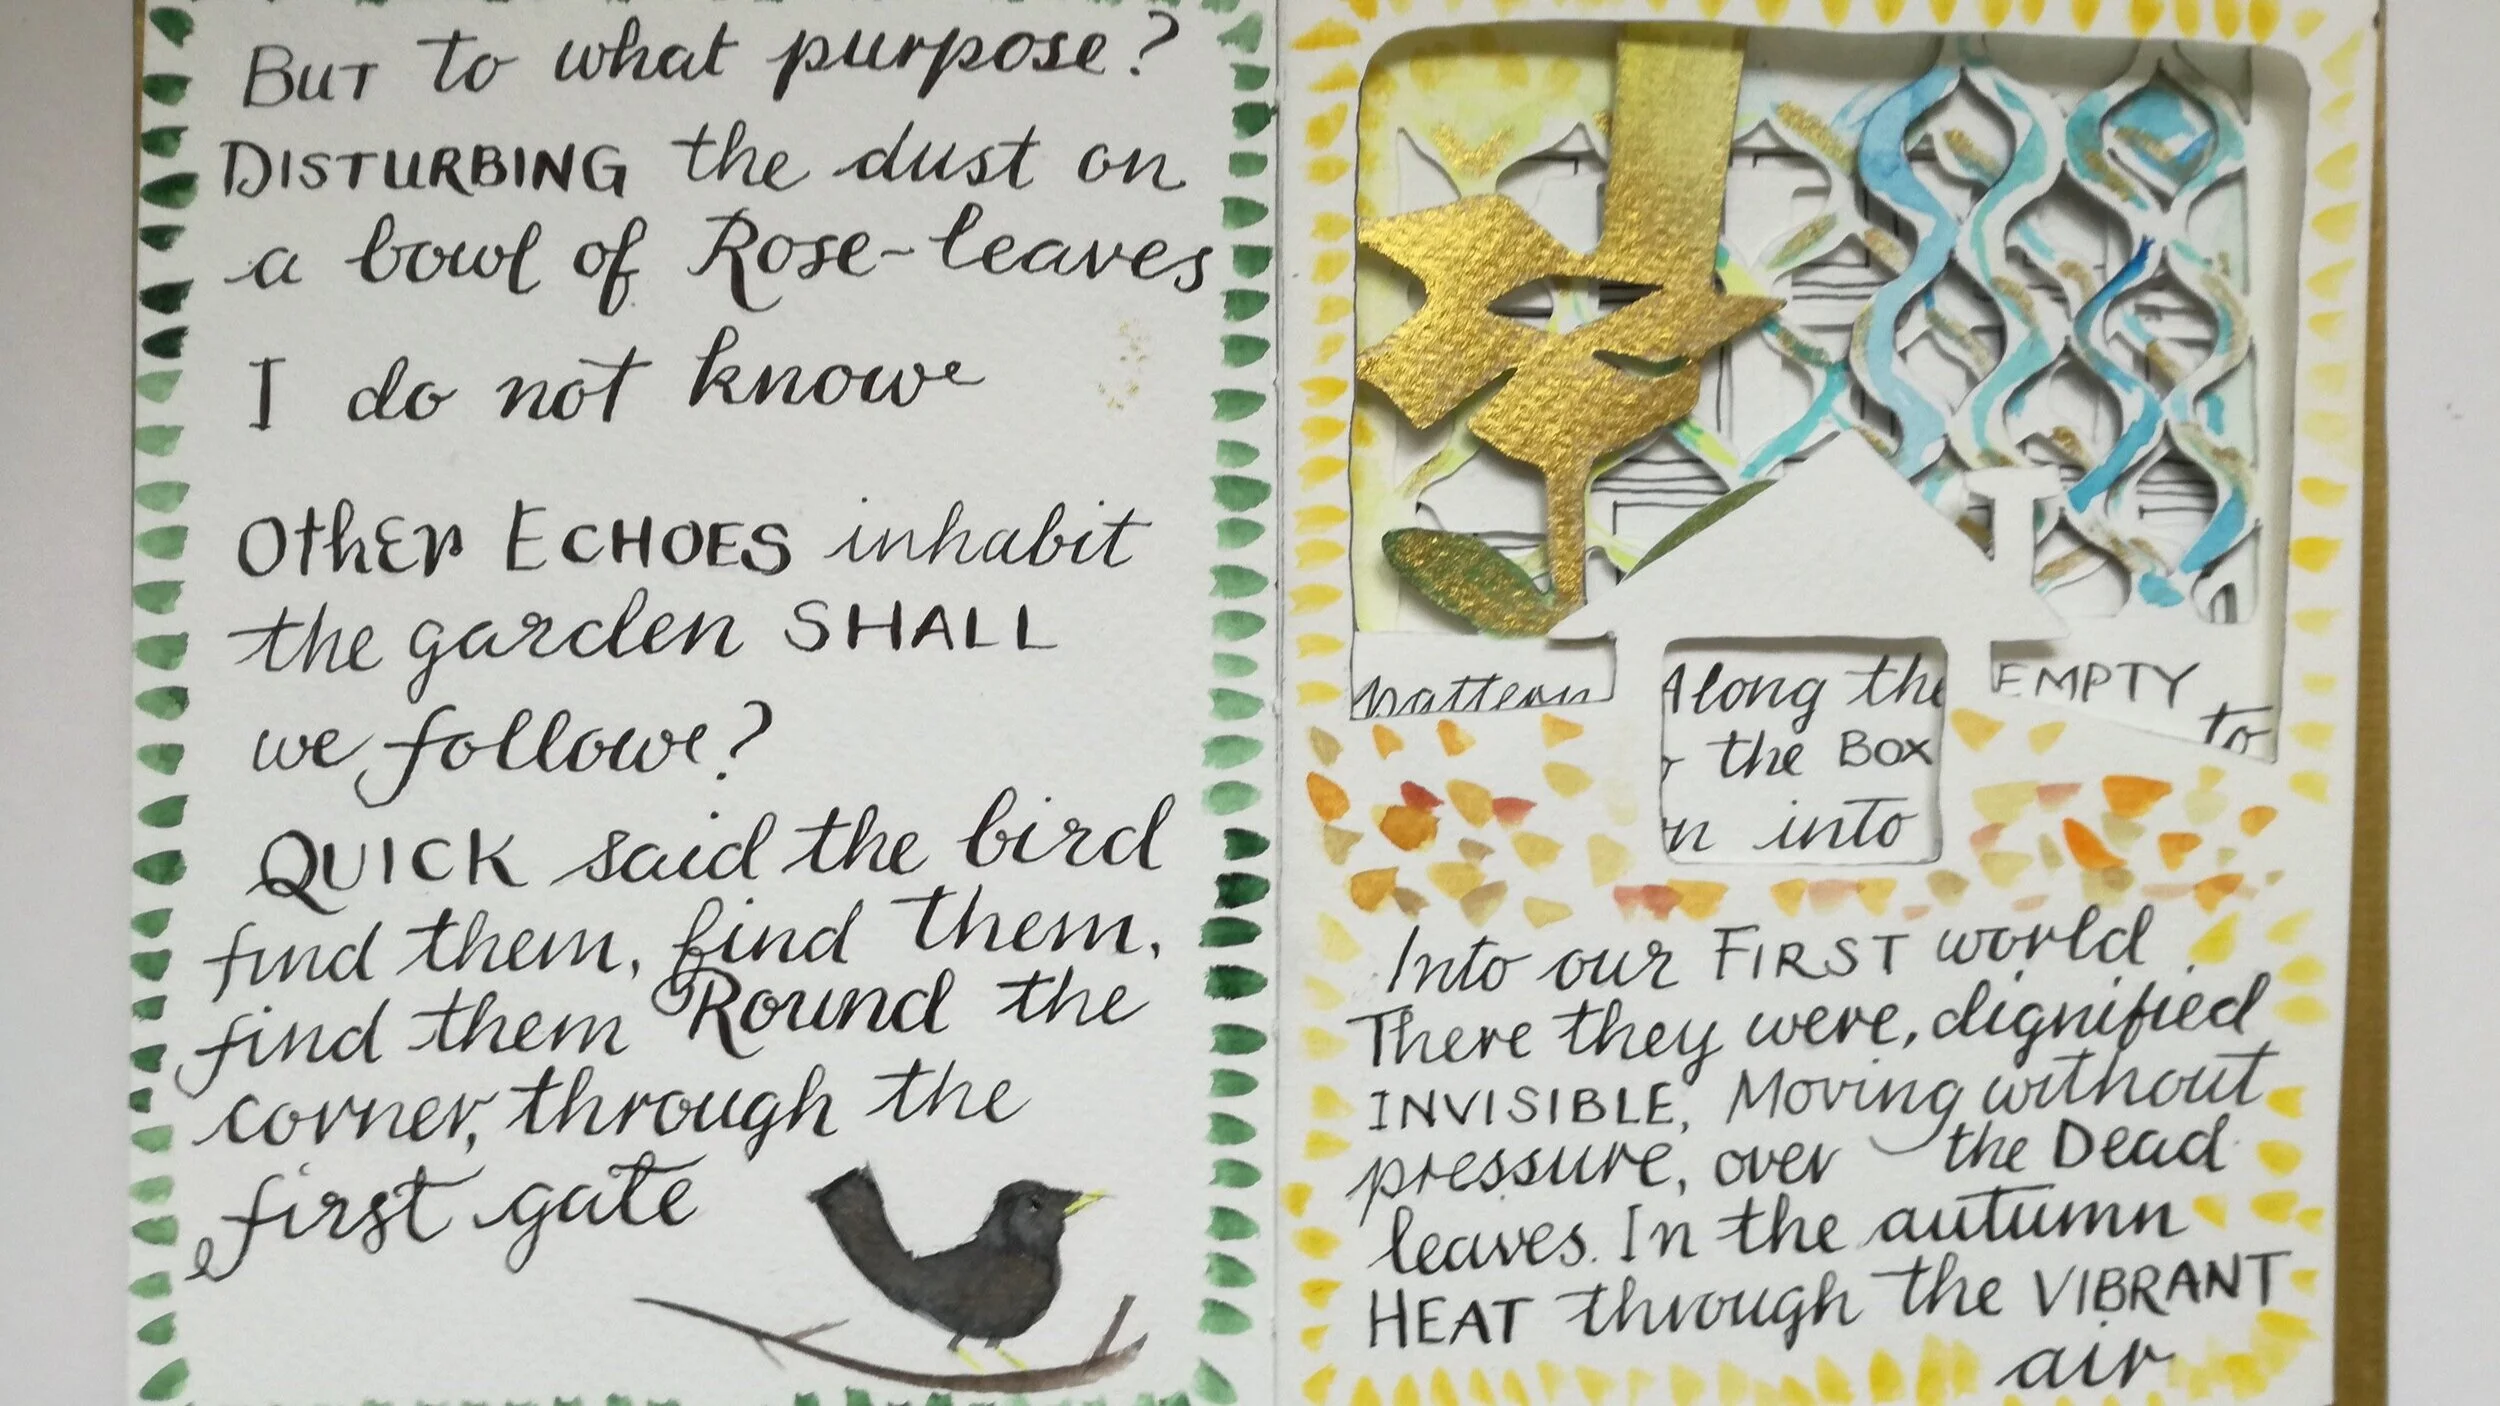 But to what purpose?
DISTURBING the dust on
a bowl of Rose-leaves
I do not knowe
Other ECHOES inhabit
the garden SHALL
we followe?
QUICK said the bird
find them, find them,
find them Round the
corner, through the
first gate
pattern
Along the
the Box
into
EMPTY
to
Into our FIRST world.
There they were, dignified
INVISIBLE, Moving without
pressure, over the Dead
leaves. In the autumn
HEAT through the VIBRANT
air